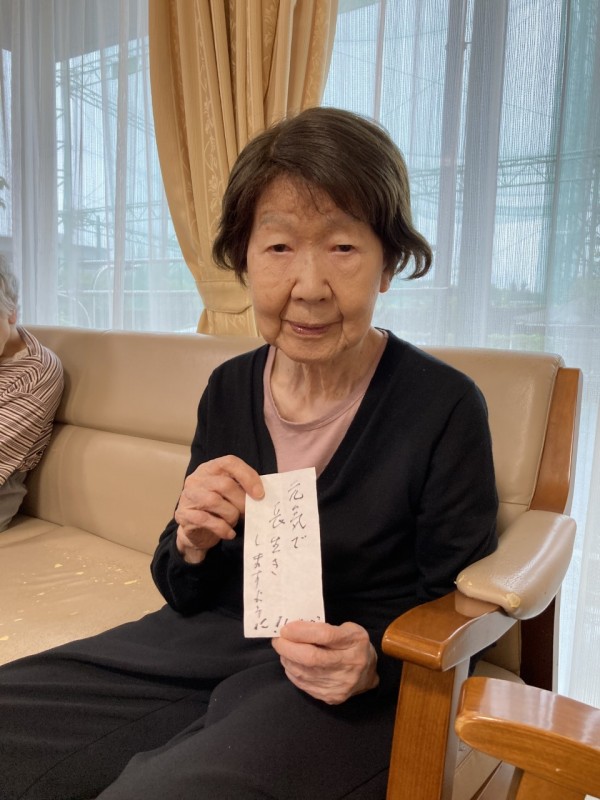 元気で
長生き
しますように